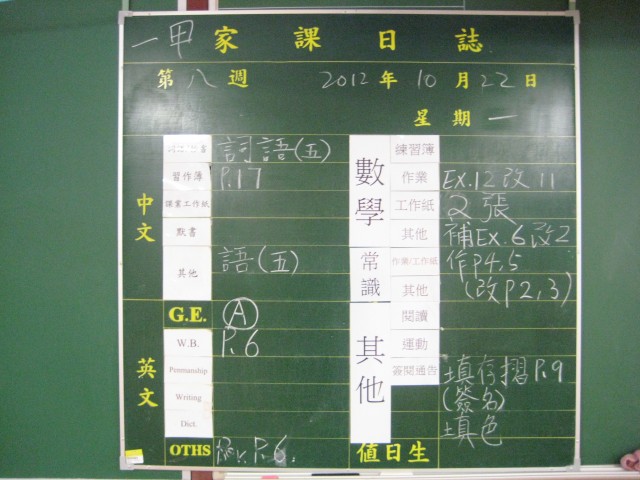 一甲 家課日誌
第八週 2012年10月22日
星期一
中文
詞語(五)
習作簿 P.17
課業工作紙
默書
其他 語(五)
英文
G.E. Ⓐ
W.B. P.6
Penmanship
Writing
Dict.
OTHS P.6.
數學
練習簿
作業 EX.12 改 11
工作紙 2張
其他 補Ex.6改2
常識
作業/工作紙 作P4,5
其他 (改P2,3)
其他
閱讀
運動
簽閱通告 填存摺P.9
(簽名)
填色
值日生